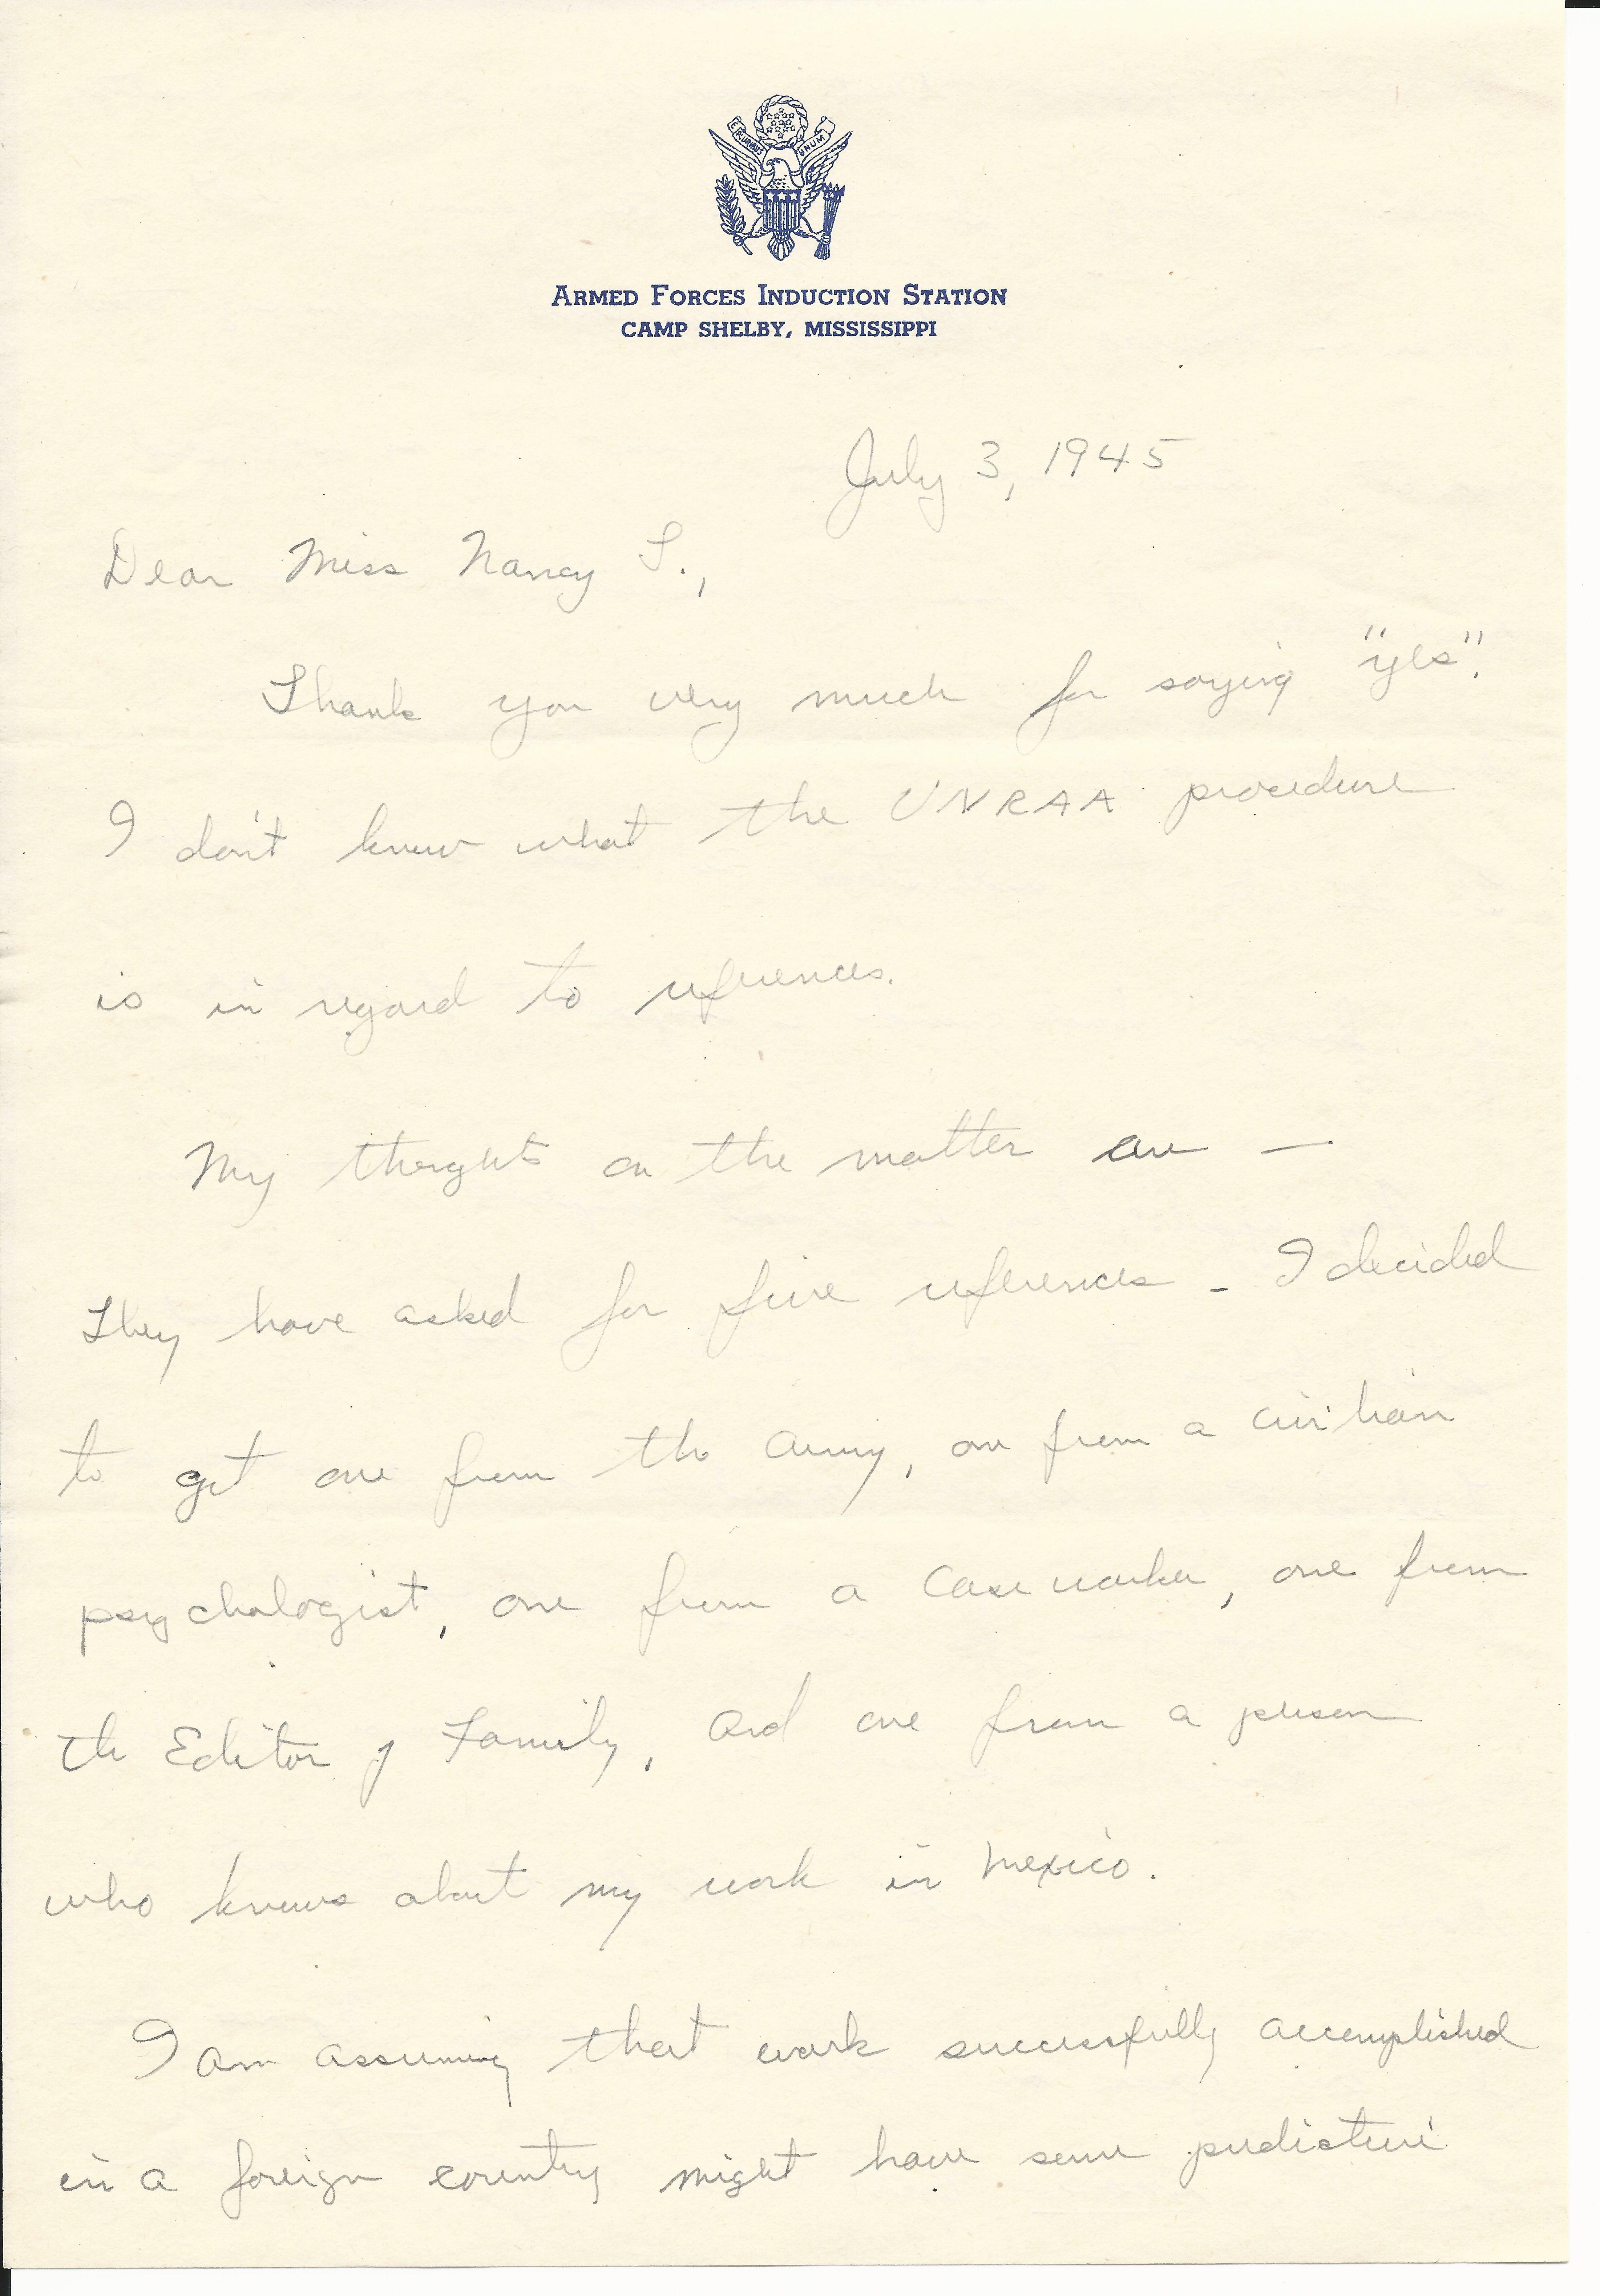 E PLURIBUS UNUM
ARMED FORCES INDUCTION STATION
CAMP SHELBY, MISSISSIPPI
July 3, 1945
Dear Miss Nancy S.,
Thank you very much for saying "yes".
I don't know what the UNRAA procedure
is in regard to references.
My thoughts on the matter are —
They have asked for five references - I decided
to get one from the Army, one from a civilian
psychologist, one from a case worker, one from
the Editor of Family, and one from a person
who knows about my work in Mexico.
I am assuming that work successfully accomplished
in a foreign country might have some predictive